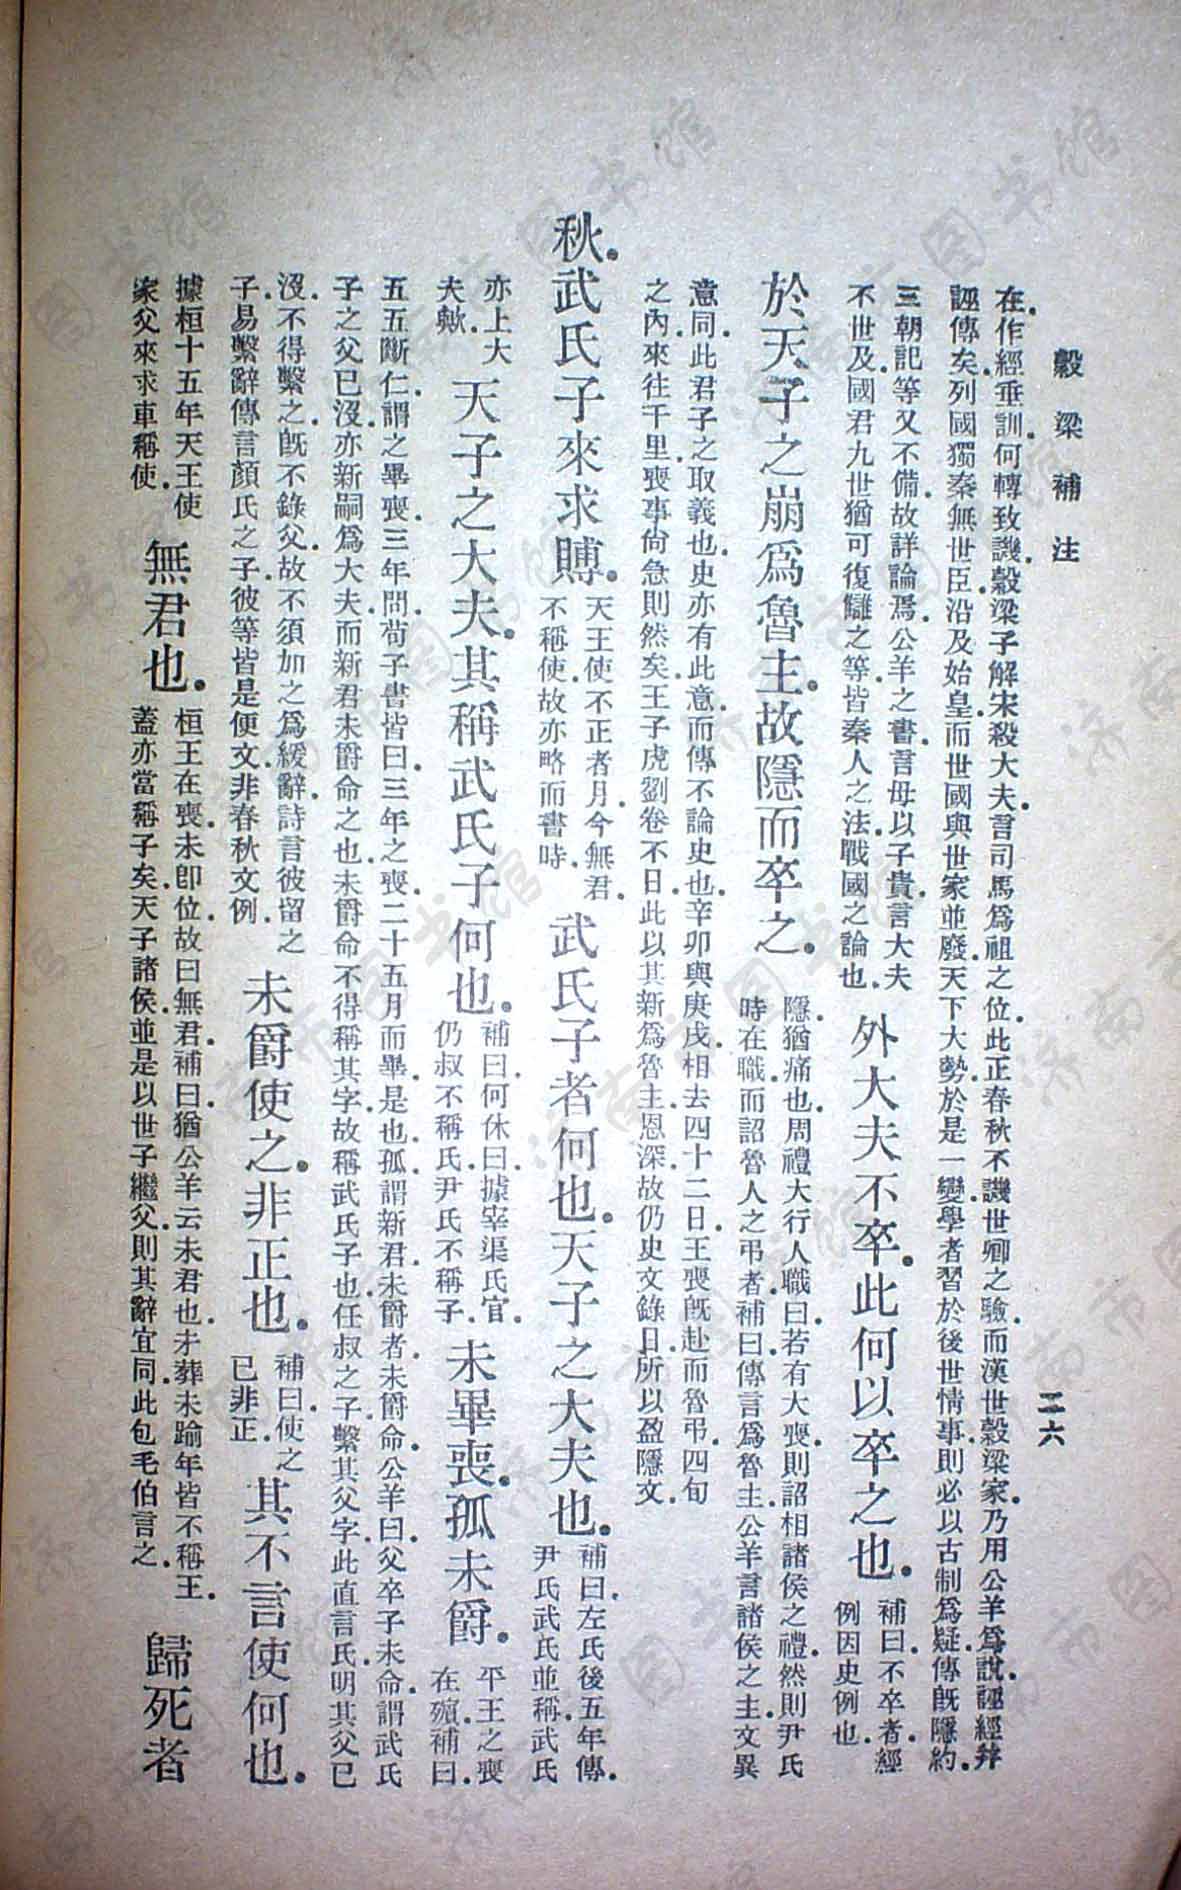 穀梁補注
二六
在作經垂訓何轉致譏穀梁子解宋殺大夫言司馬爲祖之位此正春秋不譏世卿之驗而漢世穀梁家乃用公羊爲說誣經幷
誣傳矣列國獨秦無世臣沿及始皇而世國與世家並廢天下大勢於是一變學者習於後世情事則必以古制爲疑傳旣隱約
三朝記等又不備故詳論焉公羊之書言母以子貴言大夫
不世及國君九世猶可復讎之等皆秦人之法戰國之論也
外大夫不卒此何以卒之也
補曰不卒者經
例因史例也
於天子之崩爲魯主故隱而卒之
隱猶痛也周禮大行人職曰若有大喪則詔相諸侯之禮然則尹氏
時在職而詔魯人之弔者補曰傳言爲魯主公羊言諸侯之主文異
意同此君子之取義也史亦有此意而傳不論史也辛卯與庚戌相去四十二日王喪旣赴而魯弔四旬
之內來往千里喪事尙急則然矣王子虎劉卷不日此以其新爲魯主恩深故仍史文錄日所以盈隱文
秋武氏子來求賻
天王使不正者月今無君
不稱使故亦略而書時
武氏子者何也天子之大夫也
補曰左氏後五年傳
尹氏武氏並稱武氏
亦上大
夫歟
天子之大夫其稱武氏子何也
補曰何休曰據宰渠氏官
仍叔不稱氏尹氏不稱子
未畢喪孤未爵
平王之喪
在殯補曰
五五斷仁謂之畢喪三年問荀子書皆曰三年之喪二十五月而畢是也孤謂新君未爵者未爵命公羊曰父卒子未命謂武氏
子之父已沒亦新嗣爲大夫而新君未爵命之也未爵命不得稱其字故稱武氏子也任叔之子繫其父字此直言氏明其父已
沒不得繫之旣不錄父故不須加之爲緩辭詩言彼留之
子易繫辭傳言顏氏之子彼等皆是便文非春秋文例
未爵使之非正也
補曰使之
已非正
其不言使何也
據桓十五年天王使
家父來求車稱使
無君也
桓王在喪未卽位故曰無君補曰猶公羊云未君也未葬未踰年皆不稱王
蓋亦當稱子矣天子諸侯並是以世子繼父則其辭宜同此包毛伯言之
歸死者